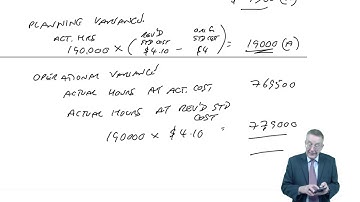 1500
PLANNING VARIANCE!
ACT. HRS REV'D STD COST ORIG STD COST
190,000 × ( $4.10 - $4 ) = 19000 (A)
OPERATIONAL VARIANCE!
ACTUAL HOURS AT ACT. COST 769500
ACTUAL HOURS AT REV'D STD
COST
190000 × $4.10 = 779000